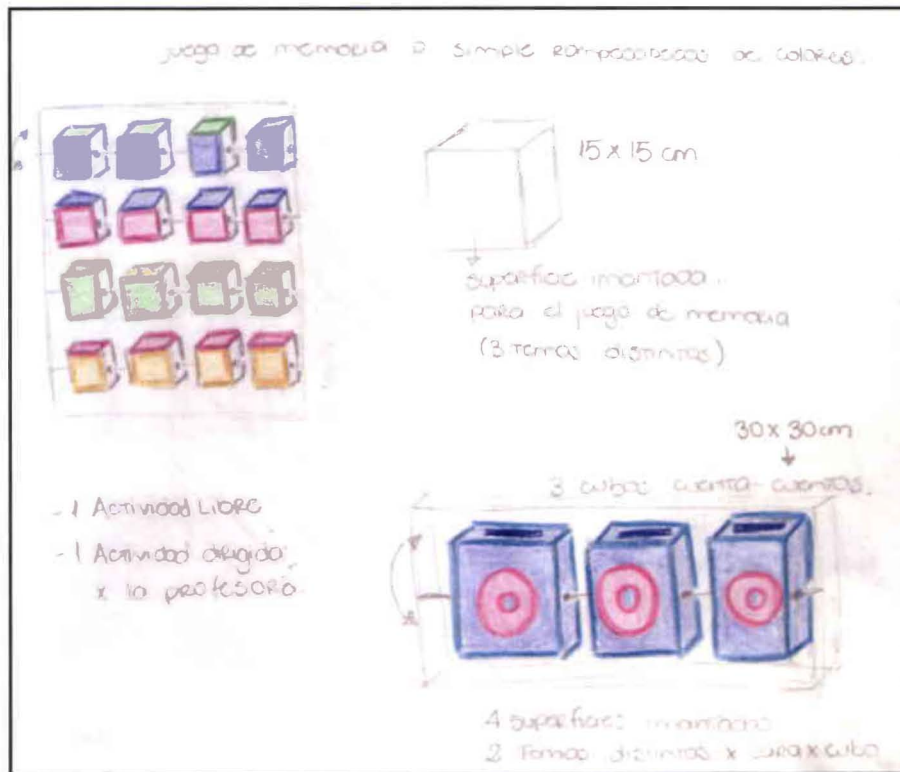 juego de memoria o simple rompecabezas de colores.
15 x 15 cm
superficie imantada.
para el juego de memoria
(3 temas distintos)
30 x 30 cm
3 cubos cuenta-cuentos.
- 1 Actividad Libre
- 1 Actividad dirigida
x la profesora.
4 superficies imantadas
2 Temas distintos x cara x cubo